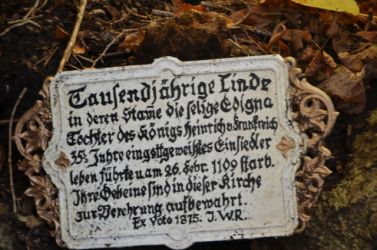 Tausendjährige Linde
in deren Stam̅e die selige Edigna
Tochter des Königs Heinrich v. Frankreich
35 Jahre ein gottgeweihtes Einsiedler
leben führte u. am 26. Febr. 1109 starb.
Ihre Gebeine sind in dieser Kirche
zur Verehrung aufbewahrt.
Ex Voto 1875. J.W.R.